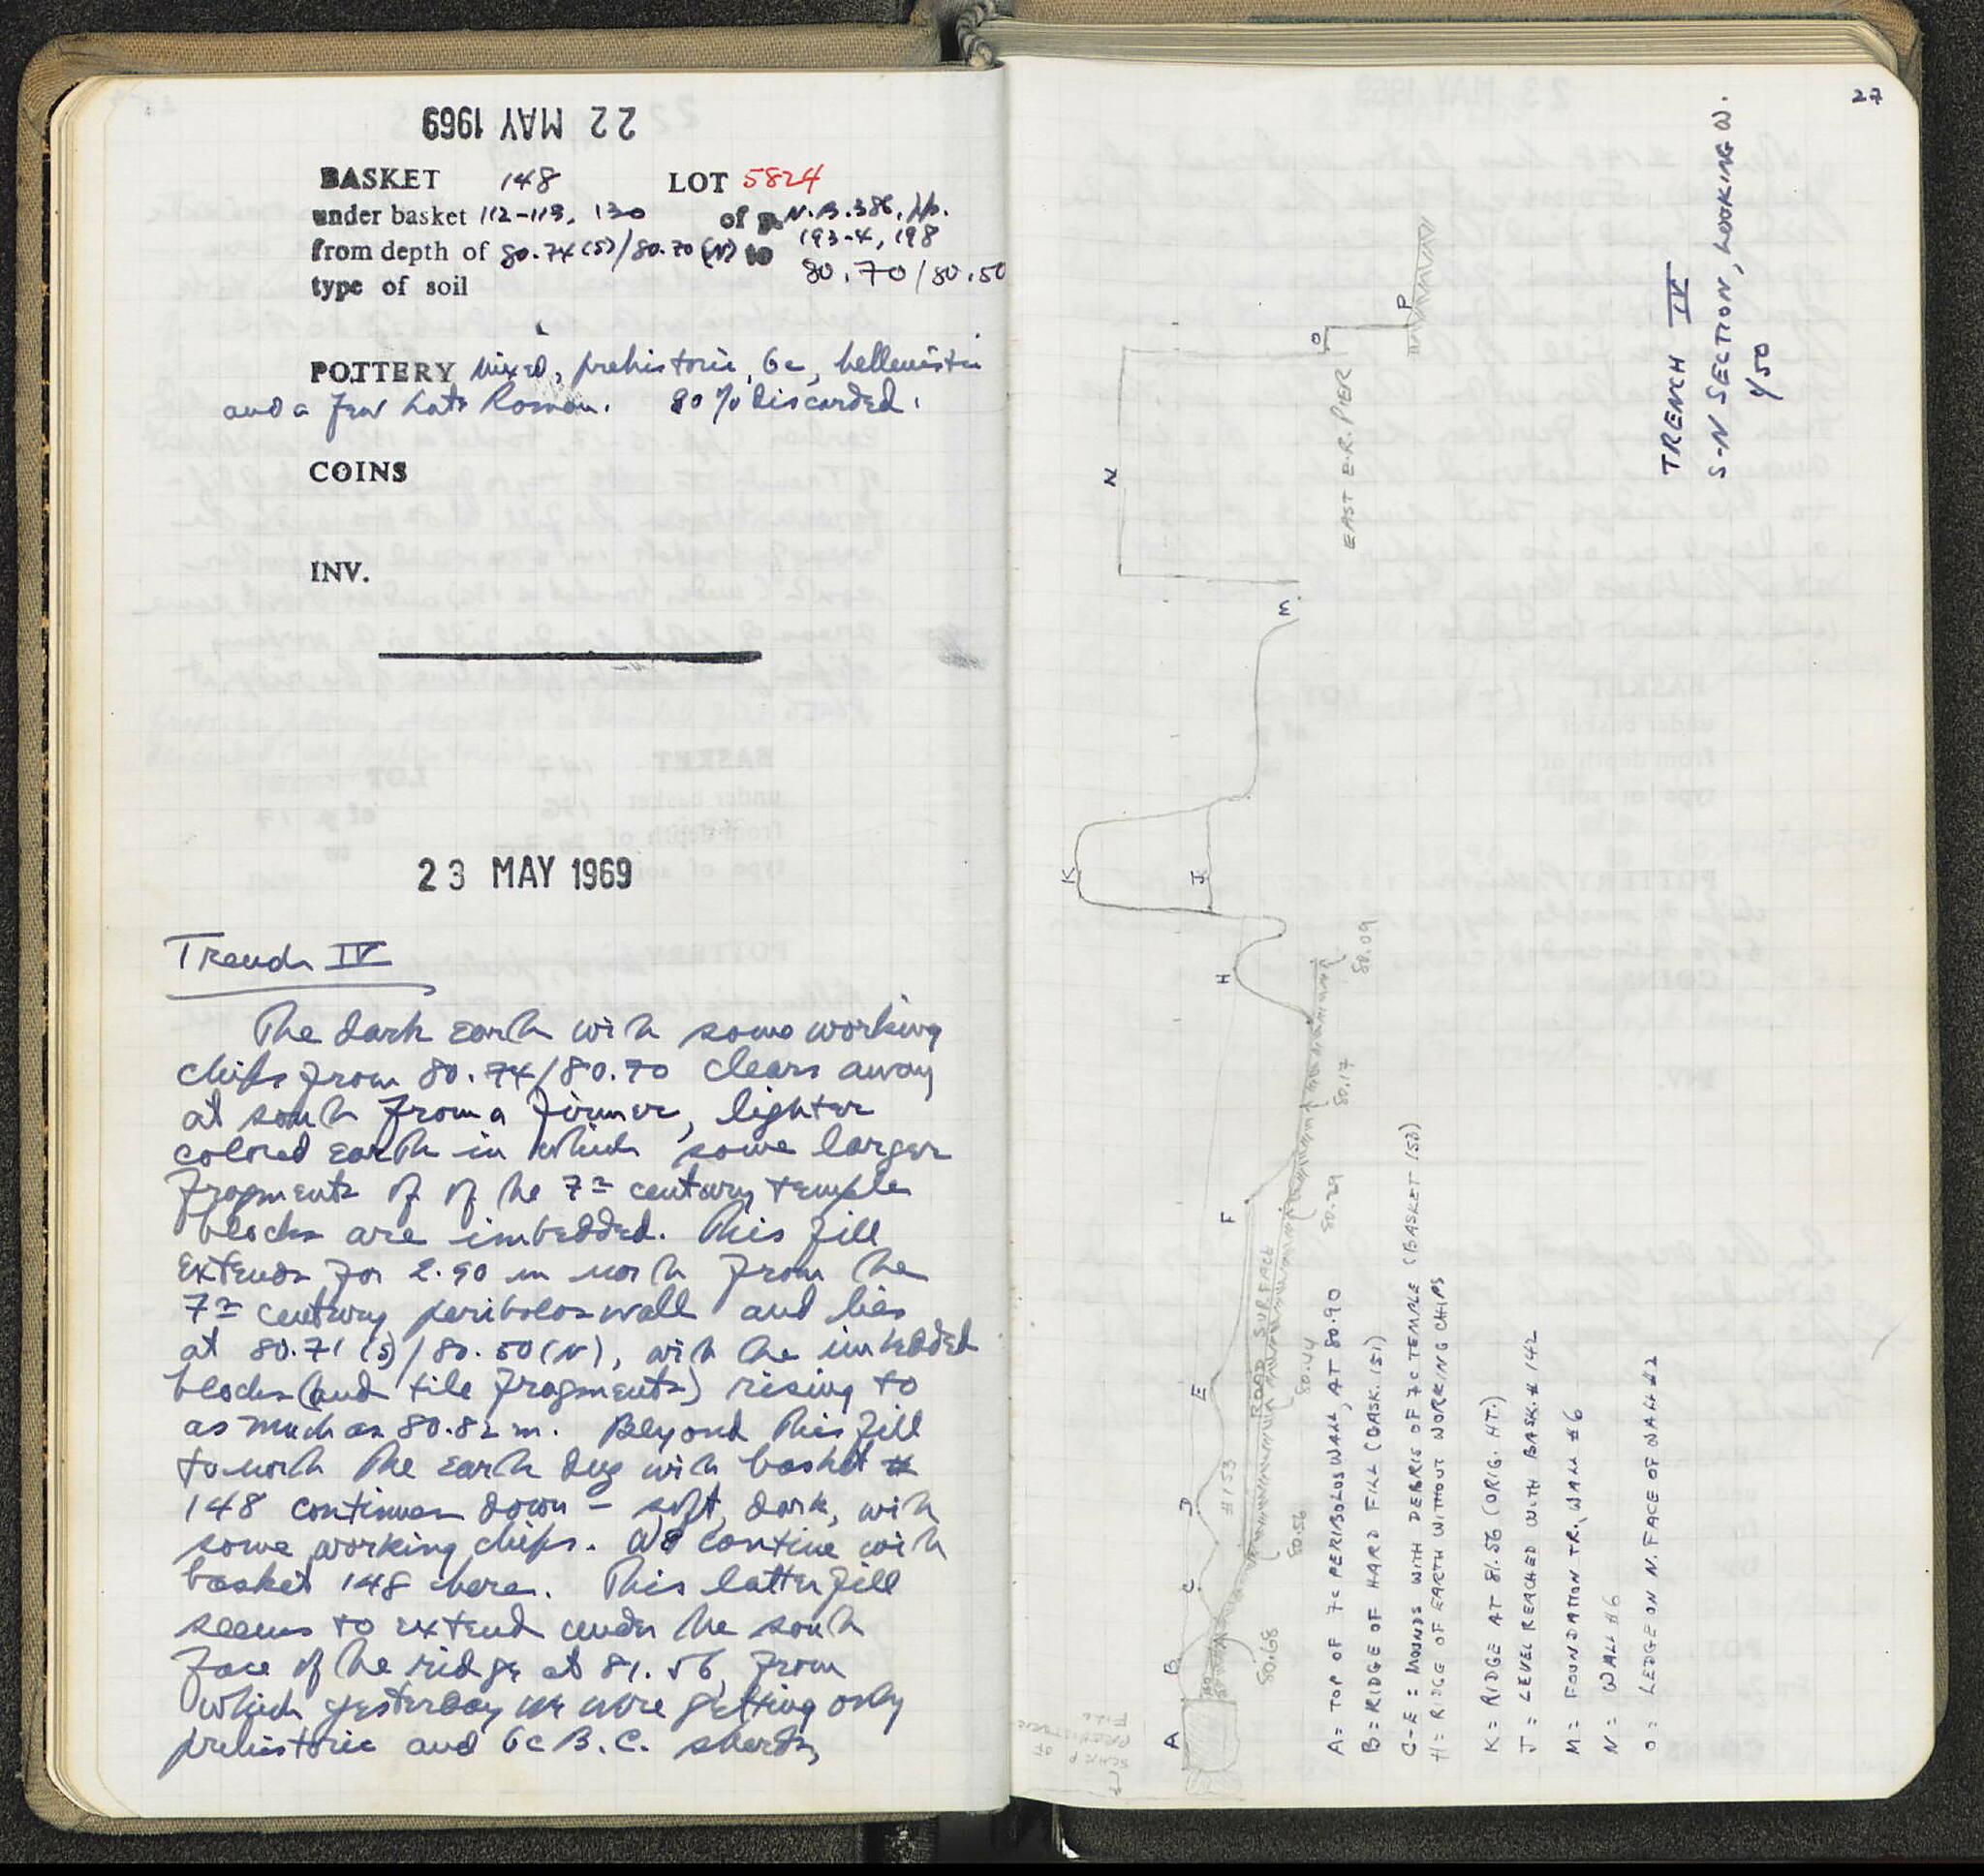 22 MAY 1969
BASKET 148 LOT 5824
under basket 112-113, 130 of p. N.B. 386, pp.
193-4, 198
from depth of 80.74(S)/80.70(N) to
80.70/80.50
type of soil
POTTERY Mixed, prehistoric, 6c, hellenistic
and a few Late Roman. 80% discarded.
COINS
INV.
23 MAY 1969
Trench IV
The dark earth with some working
chips from 80.74/80.70 clears away
at south from a firmer, lighter
colored earth in which some larger
fragments of of the 7th century temple
blocks are imbedded. This fill
extends for 2.90 m north from the
7th century peribolos wall and lies
at 80.71(S)/80.50(N), with the imbedded
blocks (and tile fragments) rising to
as much as 80.82 m. Beyond this fill
to north the earth dug with basket #
148 continues down - soft, dark, with
some working chips. We contine with
basket 148 here. This latter fill
seems to extend under the south
face of the ridge at 81.56, from
which yesterday we were getting only
prehistoric and 6c B.C. sherds,
27
TRENCH IV
S-N SECTION, LOOKING W.
1/50
A
B
C
D
E
F
H
J
K
M
N
O
P
EAST E.R. PIER
ROAD SURFACE
#153
SCARP OF
PREHISTORIC
FILL
80.68
80.56
80.44
80.29
80.17
80.09
A = TOP OF 7c PERIBOLOS WALL, AT 80.90
B = RIDGE OF HARD FILL (BASK. 151)
C-E = MOUNDS WITH DEBRIS OF 7c TEMPLE (BASKET 153)
H = RIDGE OF EARTH WITHOUT WORKING CHIPS
K = RIDGE AT 81.56 (ORIG. HT.)
J = LEVEL REACHED WITH BASK. # 142
M = FOUNDATION TR., WALL #6
N = WALL #6
O = LEDGE ON N. FACE OF WALL #2